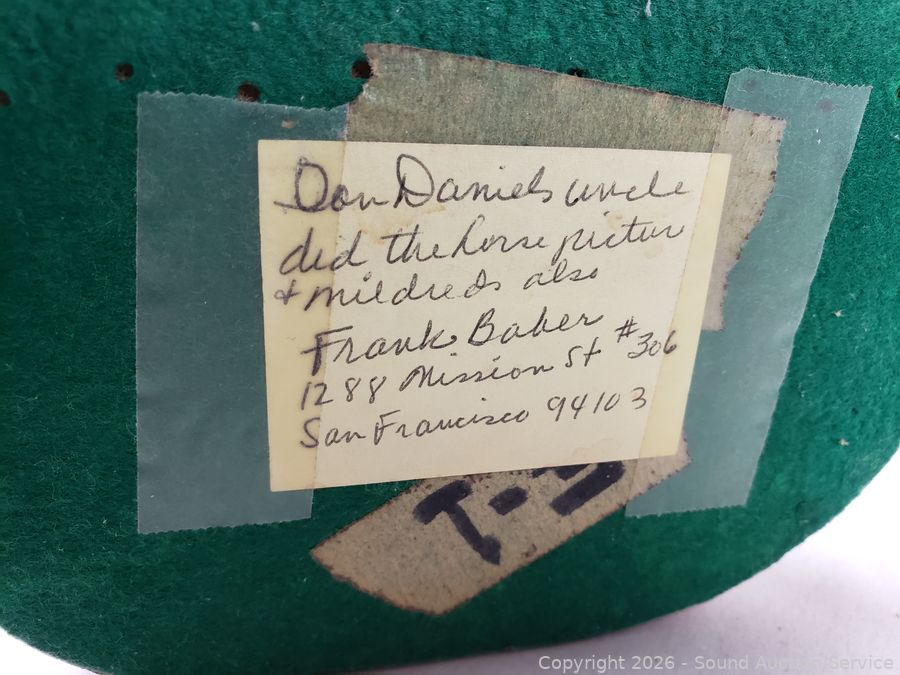 Don Daniels uncle
did the horse pictur
+ mildreds also
Frank Baber
1288 Mission St #306
San Francisco 94103
T-3
Copyright 2026 - Sound Auction Service